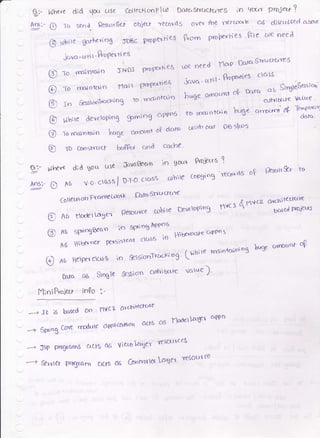 Q:- where did you use Collection F/w Data Structures in your project ?
Ans:- ① To send ResultSet object records over the network as discussed above
② while gathering JDBC properties from properties file we need
java.util.Properties
③ To maintain JNDI properties we need Map Data Structures
④ To maintain Mail properties java.util.Properties class
⑤ In SessionTracking to maintain huge amount of Data as Single Session
attribute value.
⑥ while developing gaming appns to maintain huge amount of Temporary
data.
⑦ To maintain huge amount of data without DB s/ws
⑧ To construct buffer and cache.
Q:- where did you use JavaBean in your Projects ?
Ans:- ① As V.O class / D.T.O class while copying records of ResultSet to
Collection Framework DataStructure
② As Model layer Resource while Developing MVC1 & MVC2 architecture
based projects
③ As spring Bean in spring Appns
As Hibernate persistent class in Hibernate appns
④ As Helper class in SessionTracking. ( while maintaining huge amount of
Data as Single Session attribute value ).
MiniProject info :-
→ It is based on MVC2 architecture
→ Spring Core module application acts as Model layer appn
→ Jsp programs acts as View layer resources
→ Servlet program acts as Controller Layer resource